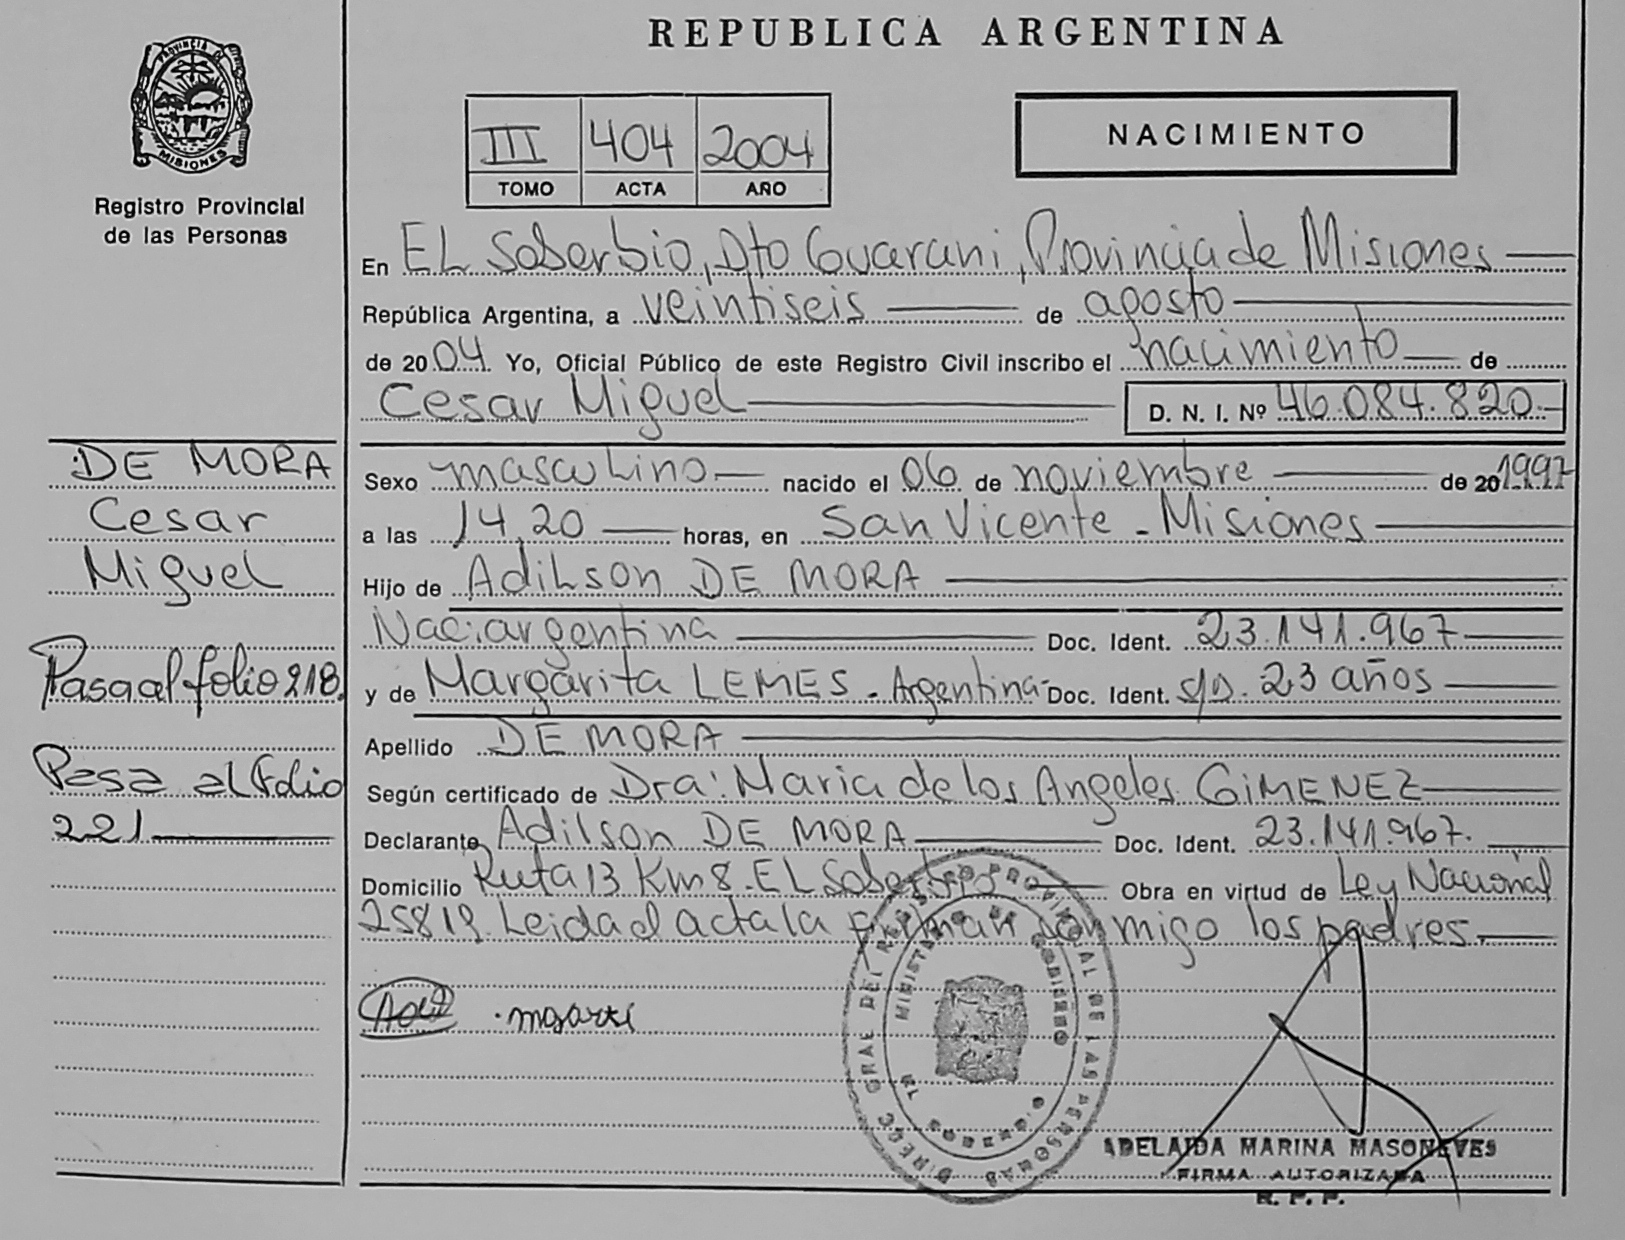 REPUBLICA ARGENTINA
PROVINCIA DE
MISIONES
Registro Provincial
de las Personas
III 404 2004
TOMO ACTA AÑO
NACIMIENTO
En EL Soberbio, Dto Guarani, Provincia de Misiones
República Argentina, a veintiseis de agosto
de 2004. Yo, Oficial Público de este Registro Civil inscribo el nacimiento de
Cesar Miguel D. N. I. Nº 46.084.820
DE MORA
Cesar
Miguel
Pasa al folio 218.
Pasa al Folio
221
Sexo masculino nacido el 06 de noviembre de 20 1997
a las 14,20 horas, en San Vicente - Misiones
Hijo de Adilson DE MORA
Nac: argentina Doc. Ident. 23.141.967
y de Margarita LEMES - Argentina - Doc. Ident. s/D. 23 años
Apellido DE MORA
Según certificado de Dra: Maria de los Angeles GIMENEZ
Declarante Adilson DE MORA Doc. Ident. 23.141.967.
Domicilio Ruta 13 Km 8. EL Soberbio Obra en virtud de Ley Nacional
25819. Leida el acta la firman conmigo los padres.
DIRECC GRAL DEL REGISTRO PROVINCIAL DE LAS PERSONAS
MINISTERIO DE GOBIERNO
ADELAIDA MARINA MASONEVES
FIRMA AUTORIZADA
R. P. P.